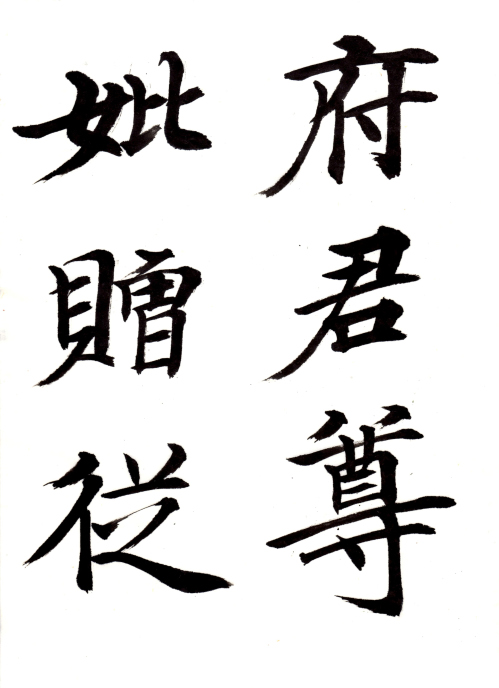 府君尊
妣贈従